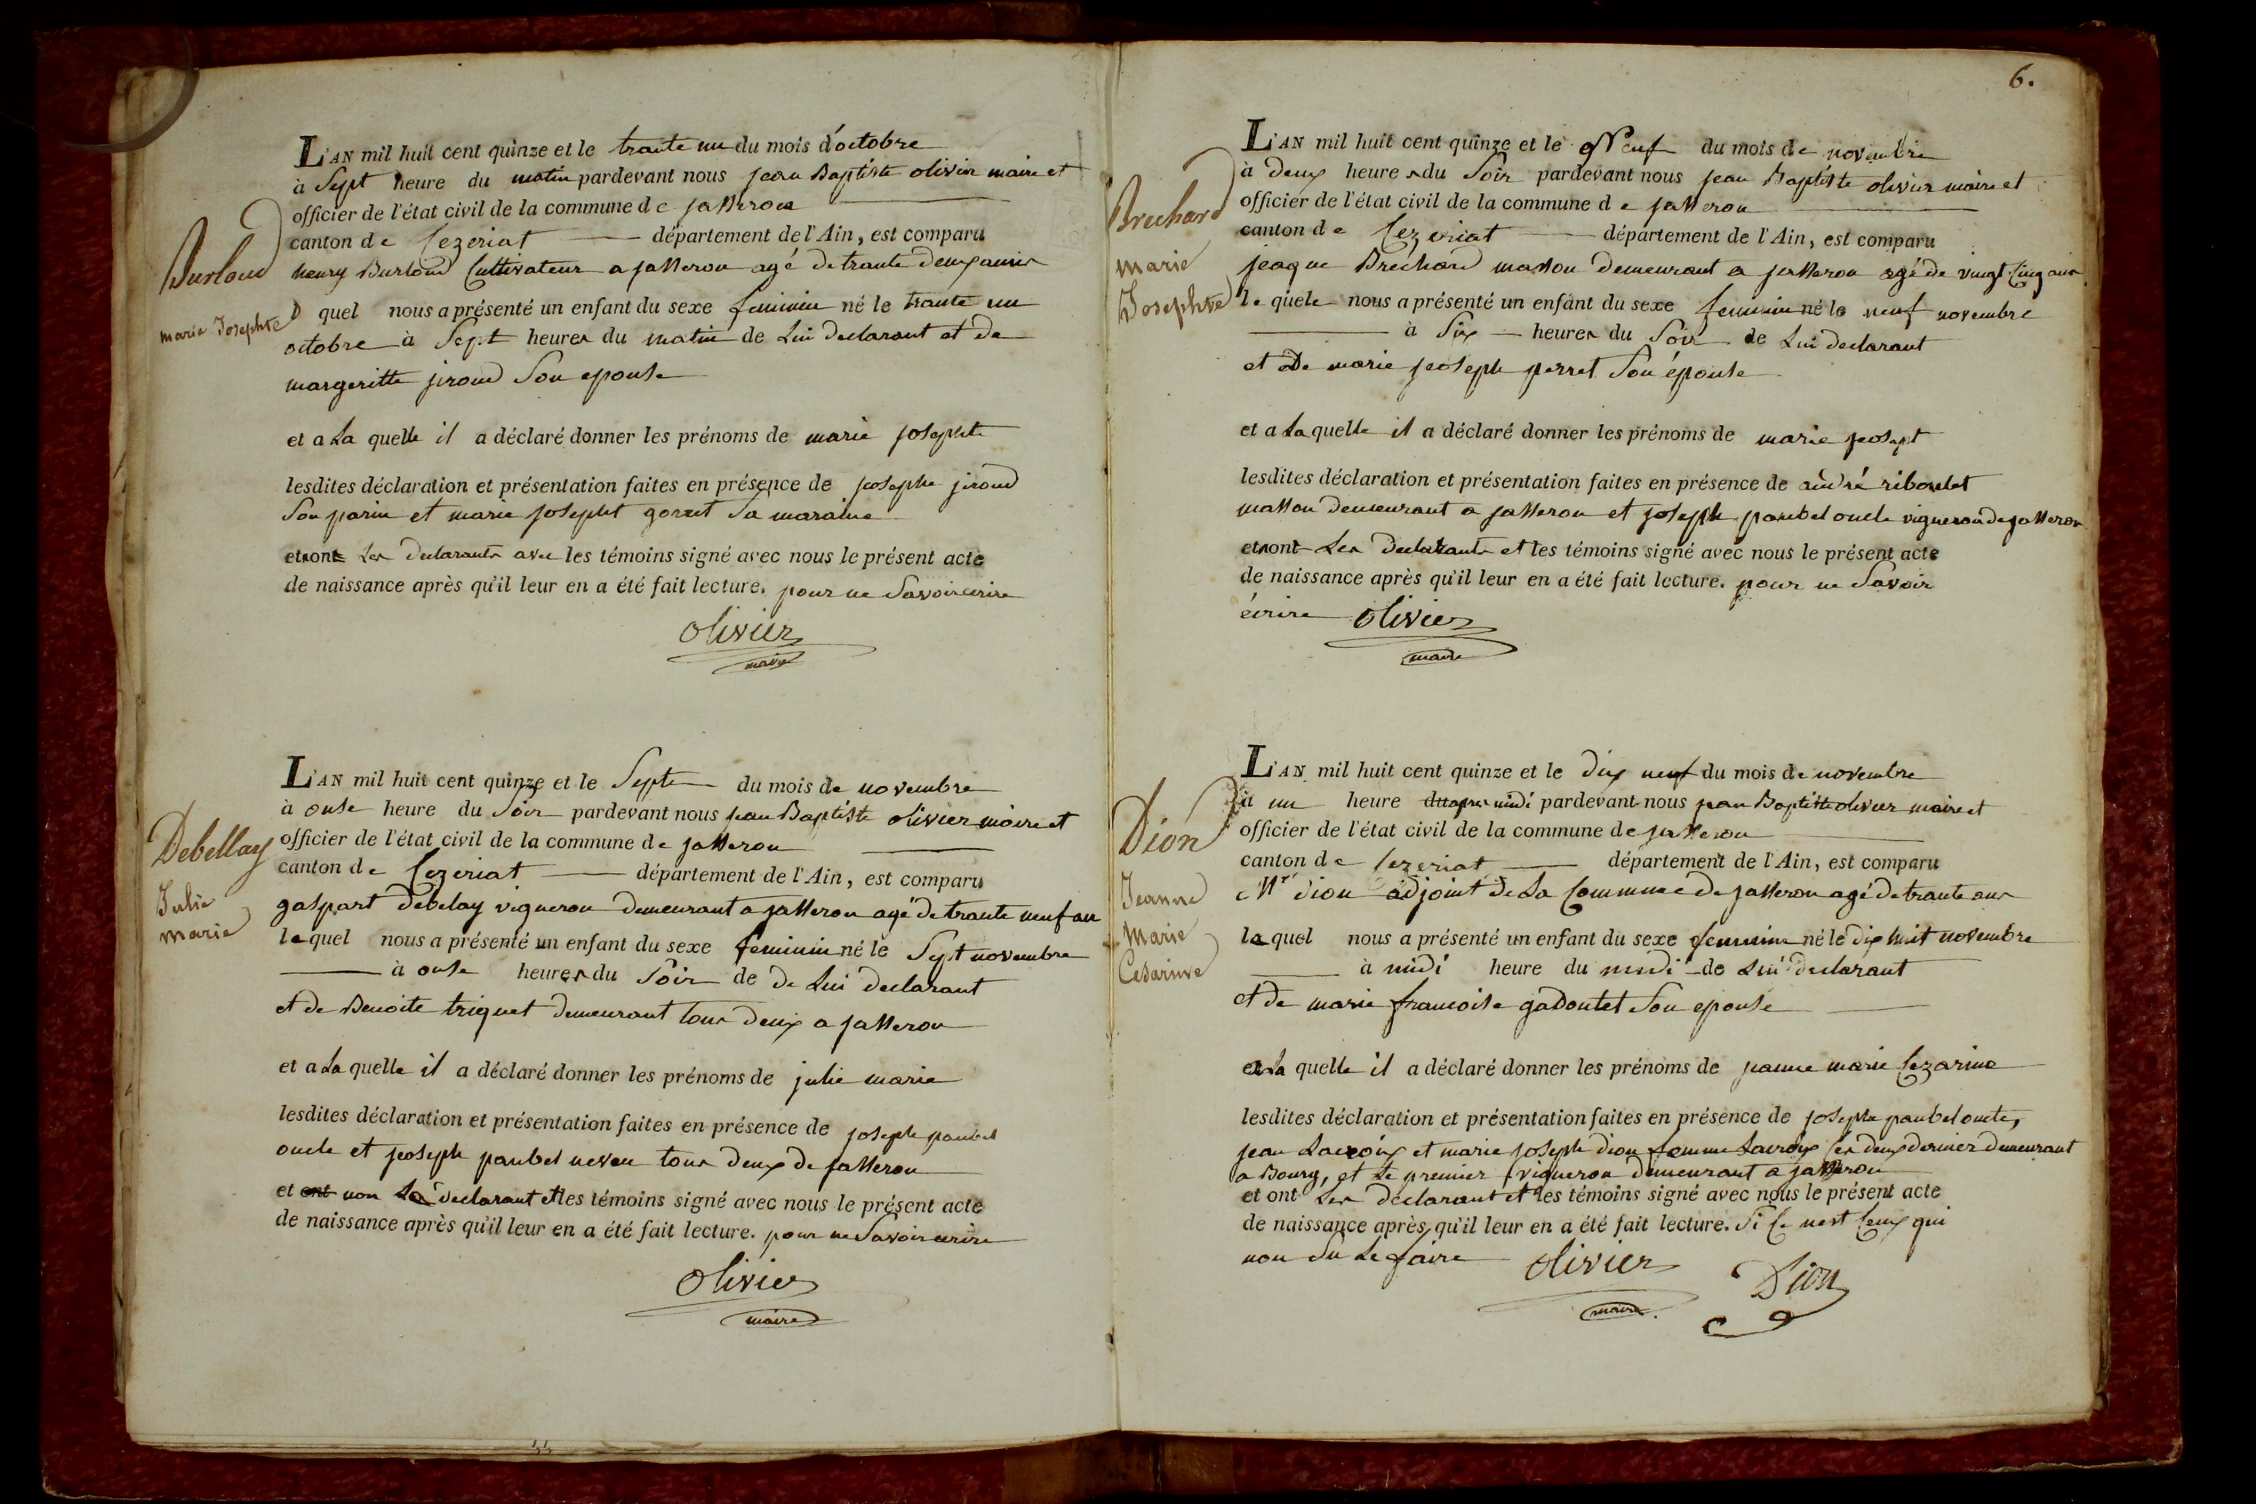 L'AN mil huit cent quinze et le trante un du mois d'octobre
à Sept heure du matin pardevant nous jean Baptiste olivier maire et
officier de l'état civil de la commune de jasseron
canton de Cezeriat département de l'Ain, est comparu
Burloud
henry Burloud Cultivateur a jasseron agé de trante deux
quel nous a présenté un enfant du sexe feminin né le trante un
marie Josephte
octobre à Sept heures du matin de Lui declarant et de
margeritte jiroud Son epouse
et a La quelle il a déclaré donner les prénoms de marie josephte
lesdites déclaration et présentation faites en présence de josephe jiroud
Son parin et marie josepht Sa maraine
et ont Les declarants avec les témoins signé avec nous le présent acte
de naissance après qu'il leur en a été fait lecture. pour ne Savoir ecrire
olivier
maire
L'AN mil huit cent quinze et le Septe du mois de novembre
à onse heure du Soir pardevant nous jean Baptiste olivier maire et
officier de l'état civil de la commune de jasseron
Debellay
canton de Cezeriat département de l'Ain, est comparu
Julie
gaspart Debelay vigneron demeurant a jasseron agé de trante neuf an
marie
lequel nous a présenté un enfant du sexe feminin né le Sept novembre
à onse heures du Soir de de Lui declarant
et de Benoite triquet demeurant tous deux a jasseron
et a La quelle il a déclaré donner les prénoms de julie marie
lesdites déclaration et présentation faites en présence de joseph paubel
oncle et joseph paubel neveu tous deux de jasseron
et ont non Le declarant et les témoins signé avec nous le présent acte
de naissance après qu'il leur en a été fait lecture. pour ne Savoir ecrire
olivier
maire
6.
L'AN mil huit cent quinze et le Neuf du mois de novembre
à deux heures du Soir pardevant nous jean Baptiste olivier maire et
Brechard
officier de l'état civil de la commune de jasseron
canton de Cezeriat département de l'Ain, est comparu
marie
jeaque Brechard masson demeurant a jasseron agé de vingt Cinq ans
Josephte
le quele nous a présenté un enfant du sexe feminin né le neuf novembre
à Six heures du Soir de Lui declarant
et De marie joseph perret Son épouse
et a La quelle il a déclaré donner les prénoms de marie josept
lesdites déclaration et présentation faites en présence de andré riboulet
masson demeurant a jasseron et joseph paubel oncle vigneron de jasseron
et ont Les declarants et les témoins signé avec nous le présent acte
de naissance après qu'il leur en a été fait lecture. pour ne Savoir
écrire olivier
maire
L'AN mil huit cent quinze et le dix neuf du mois de novembre
à un heure du apres midi pardevant nous jean Baptiste olivier maire et
Dion
officier de l'état civil de la commune de jasseron
canton de Cezeriat département de l'Ain, est comparu
Jeanne
Mr dion adjoint de La Commune de jasseron agé de trante ans
Marie
lequel nous a présenté un enfant du sexe feminin né le dix huit novembre
Cesarine
à midi heure du midi de Lui declarant
et de marie francoise gadoulet Son epouse
et a La quelle il a déclaré donner les prénoms de jeanne marie Cezarine
lesdites déclaration et présentation faites en présence de josephe paubel oncle,
jean Lacroix et marie joseph dion femme Lacroix Ces deux dernier demeurant
a Bourg, et Le premier vigneron demeurant a jasseron
et ont Les declarant et les témoins signé avec nous le présent acte
de naissance après qu'il leur en a été fait lecture. Si Ce nest Ceux qui
non Su Le faire olivier Dion
maire